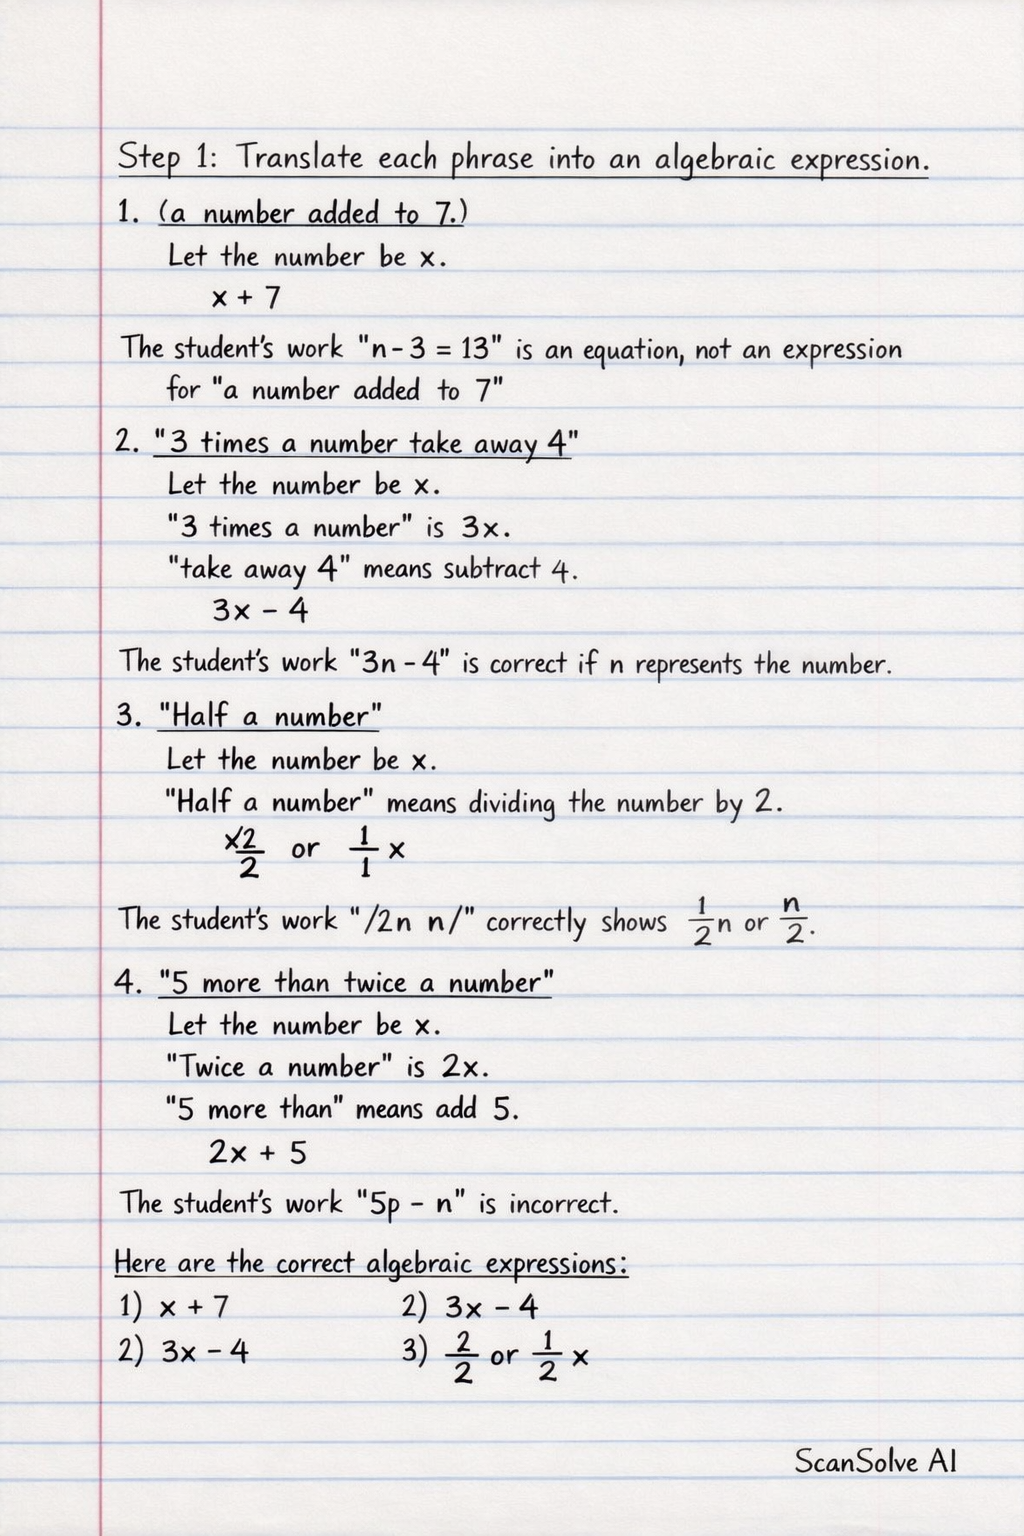 Step 1: Translate each phrase into an algebraic expression.
1. (a number added to 7.)
Let the number be x.
x + 7
The student's work "n - 3 = 13" is an equation, not an expression
for "a number added to 7"
2. "3 times a number take away 4"
Let the number be x.
"3 times a number" is 3x.
"take away 4" means subtract 4.
3x - 4
The student's work "3n - 4" is correct if n represents the number.
3. "Half a number"
Let the number be x.
"Half a number" means dividing the number by 2.
x2/2 or 1/1 x
The student's work "/2n n/" correctly shows 1/2 n or n/2.
4. "5 more than twice a number"
Let the number be x.
"Twice a number" is 2x.
"5 more than" means add 5.
2x + 5
The student's work "5p - n" is incorrect.
Here are the correct algebraic expressions:
1) x + 7 2) 3x - 4
2) 3x - 4 3) 2/2 or 1/2 x
ScanSolve AI